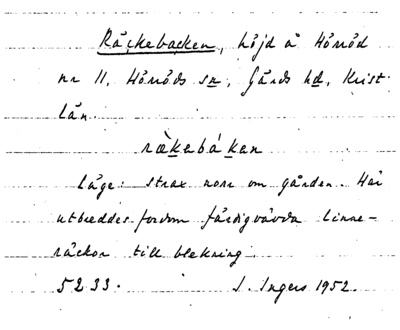 Räckebacken, höjd å Hörröd
nr 11, Hörröds sn, Gärds hd, Krist.
län.
rækabákan
Läge: strax norr om gården. Här
utbreddes fordom färdigvävda linne-
räckor till blekning.
5233. I. Ingers 1952.